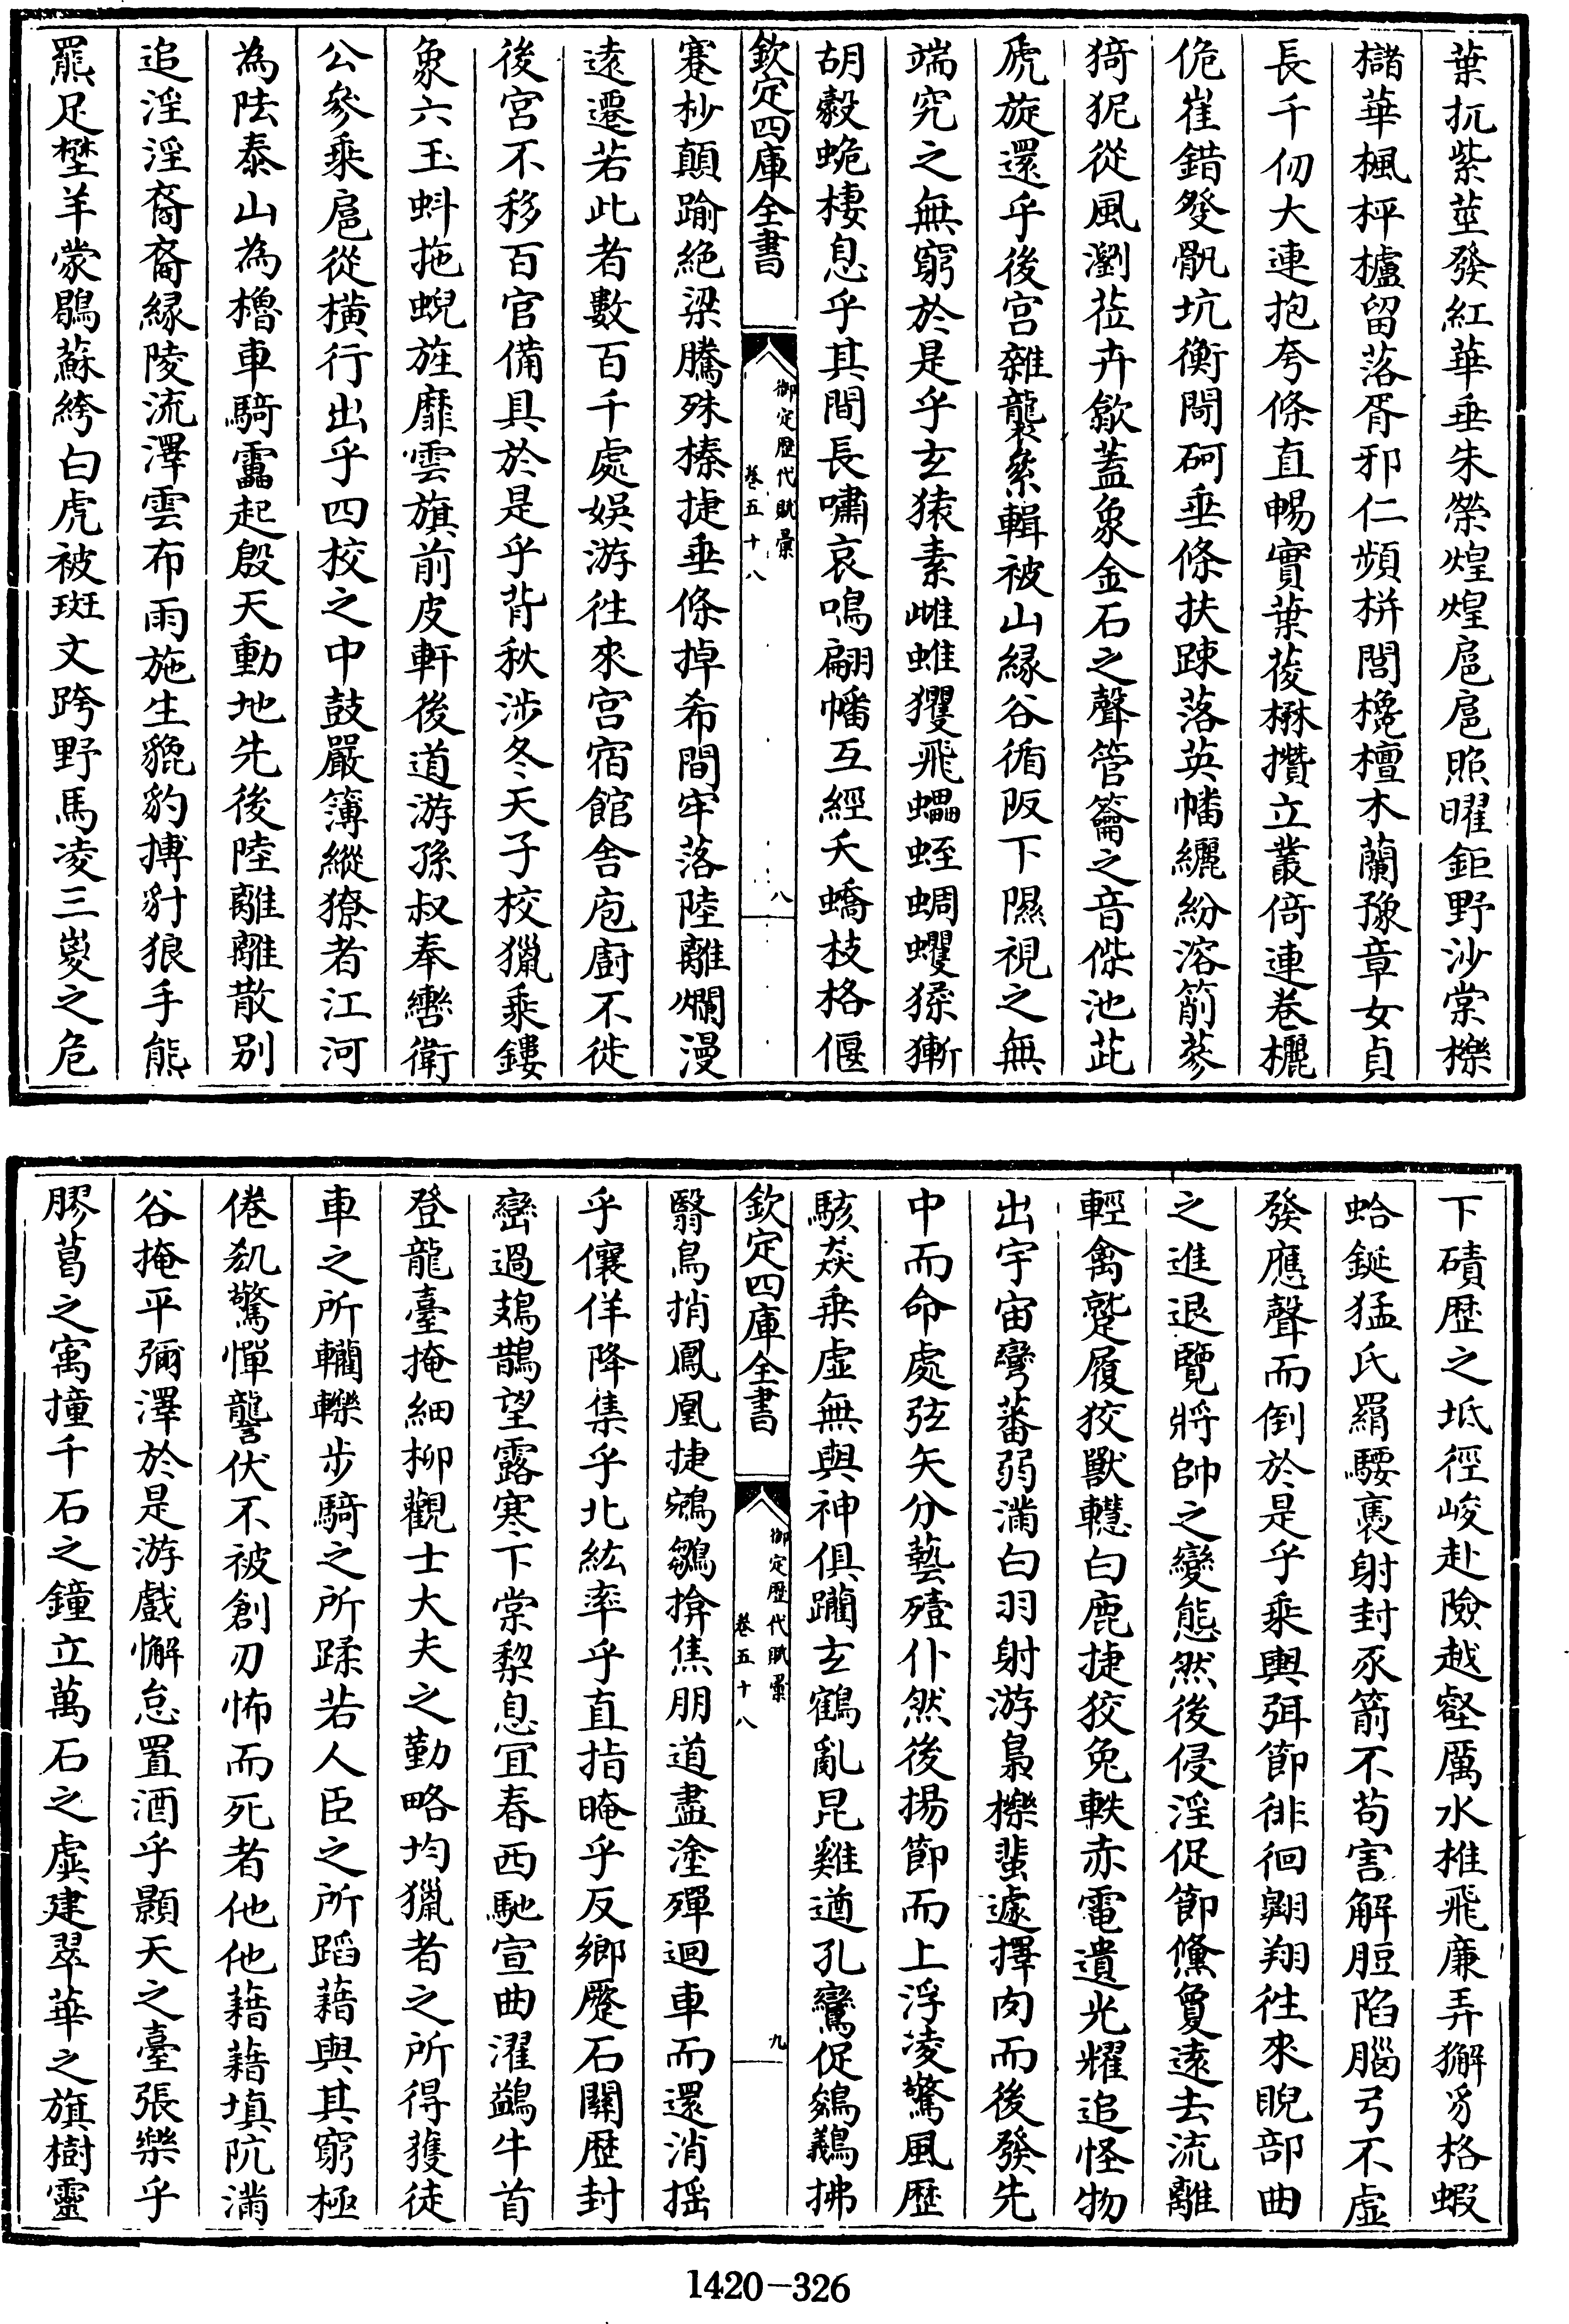 葉扤紫莖發紅華垂朱榮煌煌扈扈照曜鉅野沙棠櫟
櫧華楓枰櫨留落胥邪仁頻栟閭欃檀木蘭豫章女貞
長千仞大連抱夸條直暢實葉葰楙攢立叢倚連卷欐
佹崔錯癹骫坑衡閜砢垂條扶疎落英幡纚紛溶箾蔘
猗狔從風瀏莅卉歙蓋象金石之聲管籥之音偨池茈
虒旋還乎後宮雜襲絫輯被山緣谷循阪下隰視之無
端究之無窮於是乎玄猿素雌蜼玃飛蠝蛭蜩蠼猱獑
胡豰蛫棲息乎其間長嘯哀鳴翩幡互經夭蟜枝格偃
欽定四庫全書
御定歷代賦彙
卷五十八
八
蹇杪顛踰絶梁騰殊榛捷垂條掉希間牢落陸離爛漫
遠遷若此者數百千處娛游徃來宮宿館舍庖廚不徙
後宮不移百官備具於是乎背秋涉冬天子校獵乘鏤
象六玉蚪拖蜺旌靡雲旗前皮軒後道游孫叔奉轡衛
公參乘扈從橫行出乎四校之中鼓嚴簿縱獠者江河
為阹泰山為櫓車騎靁起殷天動地先後陸離離散别
追淫淫裔裔緣陵流澤雲布雨施生貔豹搏豺狼手熊
羆足壄羊蒙鶡蘇絝白虎被斑文跨野馬凌三嵏之危
下磧歷之坻徑峻赴險越壑厲水推飛廉弄獬豸格蝦
蛤鋋猛氏羂騕褭射封豕箭不苟害解脰陷腦弓不虛
發應聲而倒於是乎乘輿弭節徘徊翺翔徃來睨部曲
之進退覽將帥之變態然後侵淫促節儵夐遠去流離
輕禽蹵履狡獸轊白鹿捷狡兔軼赤電遺光耀追怪物
出宇宙彎蕃弱滿白羽射游梟櫟蜚遽擇肉而後發先
中而命處弦矢分藝殪仆然後揚節而上浮凌驚風歷
駭猋乘虛無與神俱躪玄鶴亂昆雞遒孔鸞促鵔鸃拂
欽定四庫全書
御定歷代賦彙
卷五十八
九
翳鳥捎鳳凰捷鵷鶵揜焦朋道盡塗殫迴車而還消摇
乎儴佯降集乎北紘率乎直指晻乎反鄉蹷石闗歷封
巒過鳷鵲望露寒下棠棃息宜春西馳宣曲濯鷁牛首
登龍臺掩細柳觀士大夫之勤略均獵者之所得獲徒
車之所轥轢步騎之所蹂若人臣之所蹈藉與其窮極
倦㕁驚憚讋伏不被創刃怖而死者他他藉藉填阬滿
谷掩平彌澤於是游戲懈怠置酒乎顥天之臺張樂乎
膠葛之㝢撞千石之鐘立萬石之虡建翠華之旗樹靈
1420-326